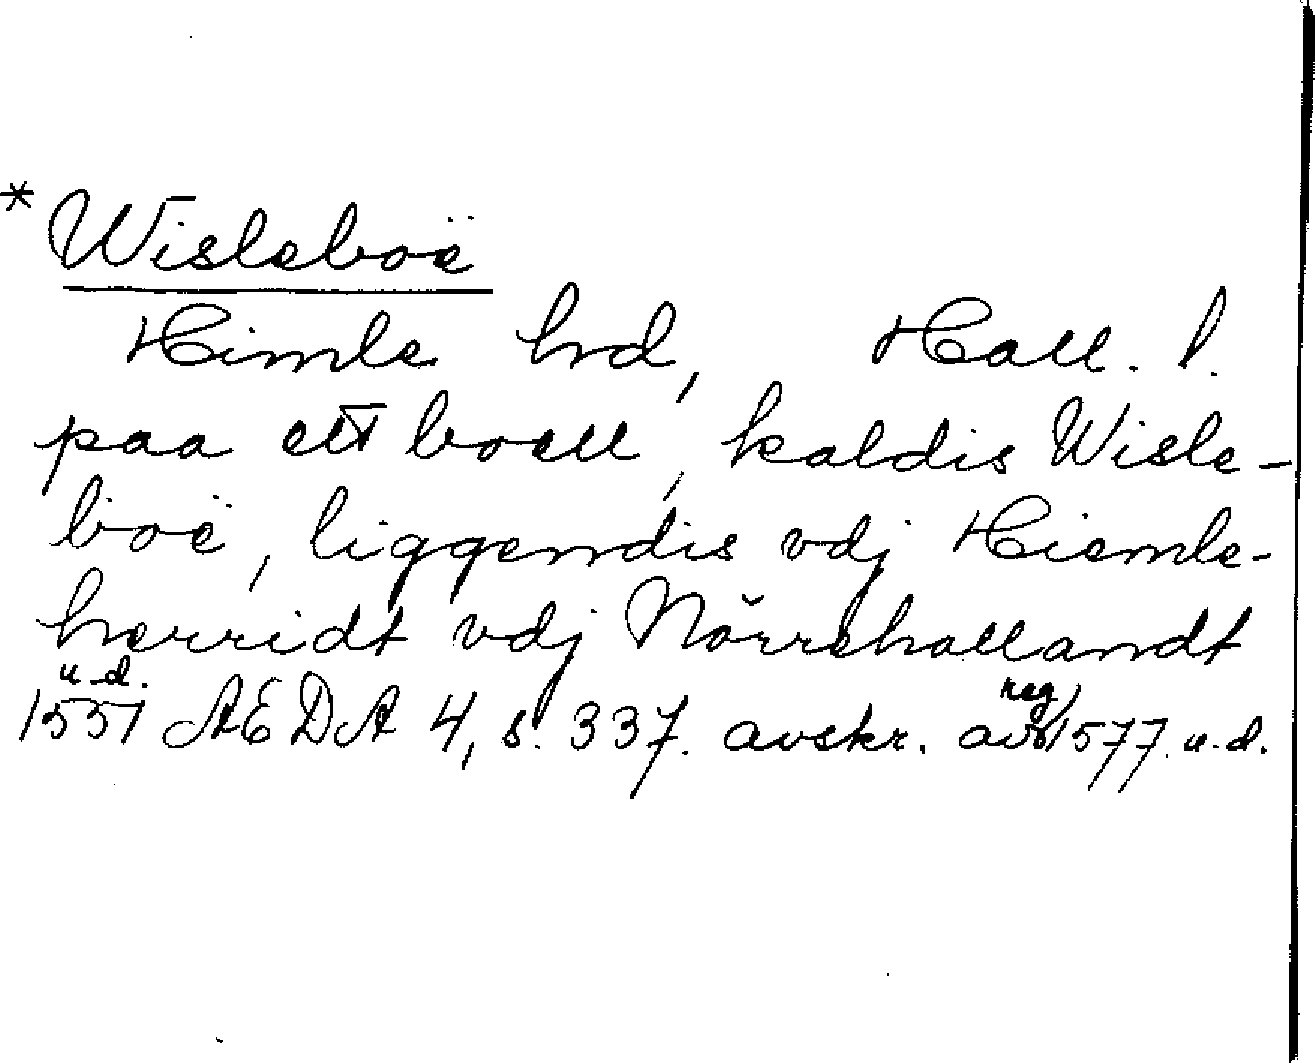 * Wisleboë
Himle hrd, Hall. l.
paa ett boell, kaldis Wisle-
boë, liggendis vdj Hiemle-
herridt vdj Nörrehallandt
u.d.
1551 AEDA 4, s. 337. avskr. av reg 1577 u.d.